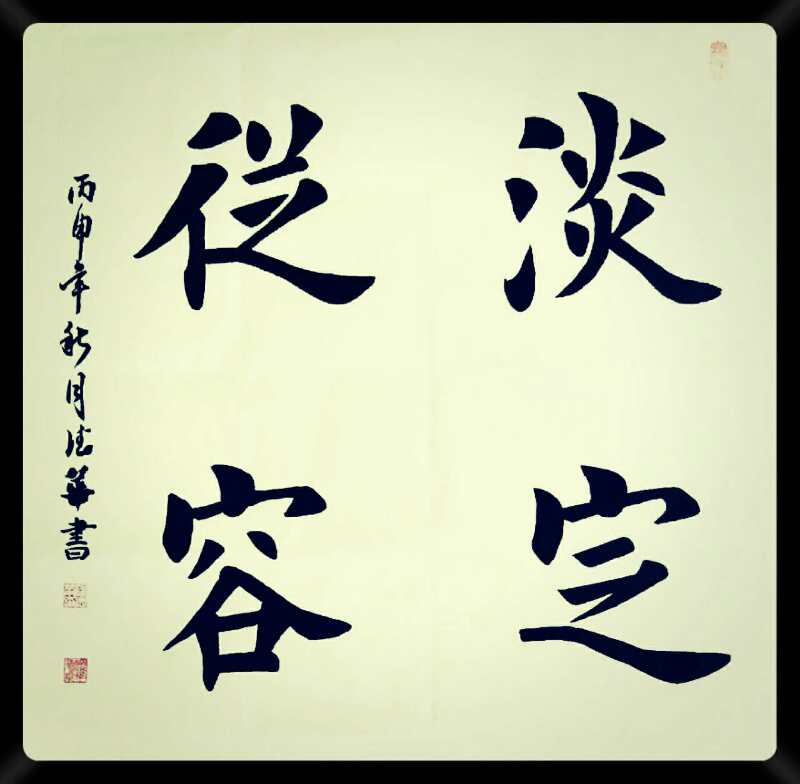 淡定
從容
丙申年秋月德華書